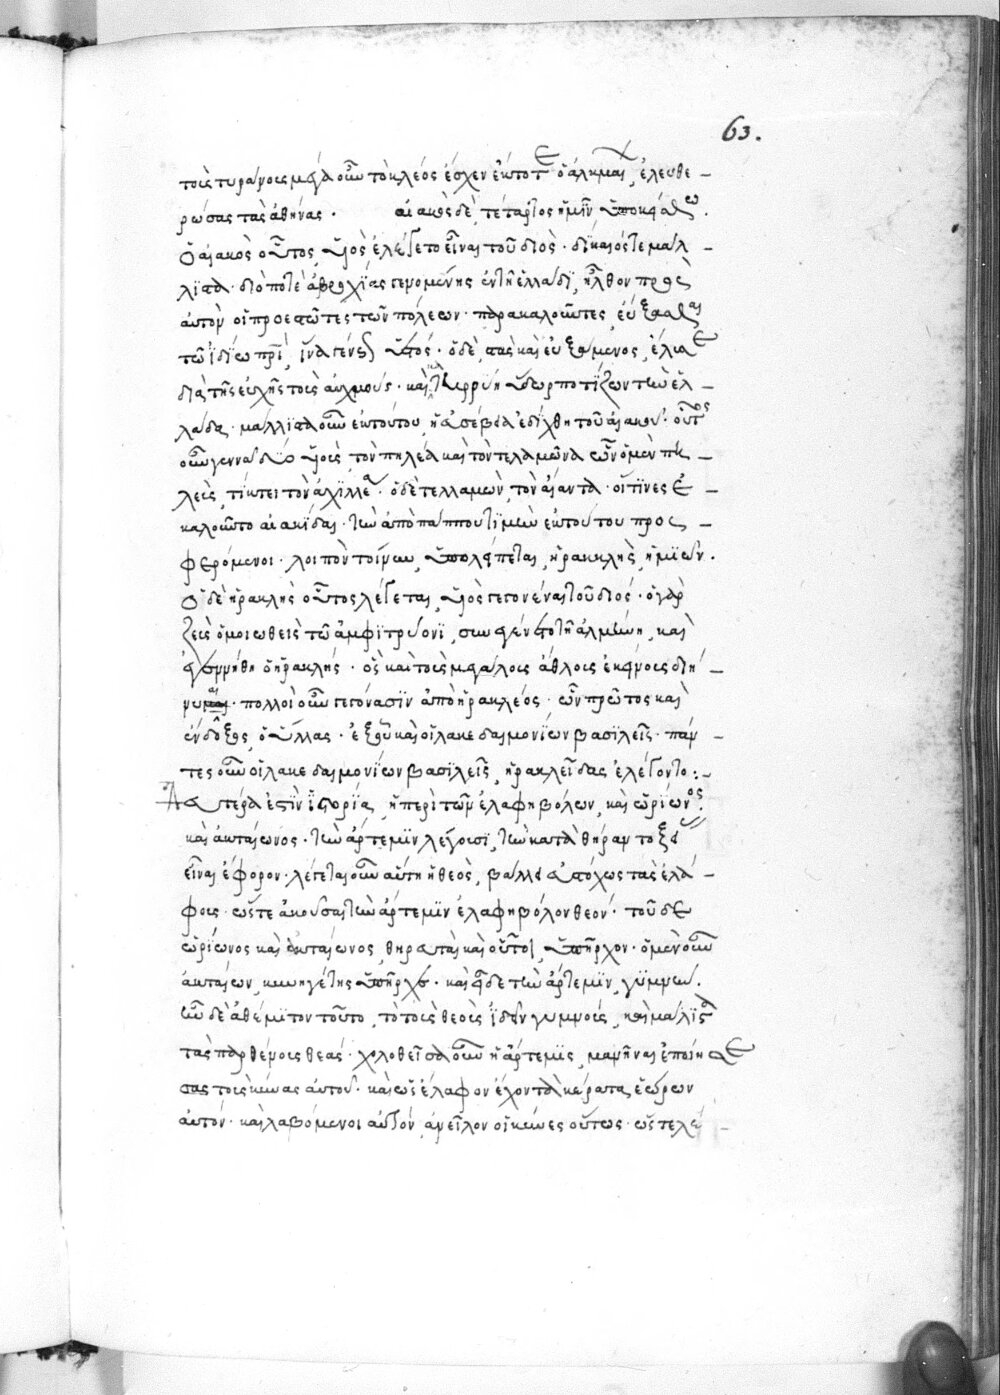 63.
τοὺς τυράννους μέγα οὖν τὸ κλέος ἔσχεν ἐκ τότε ὁ ἀλκμαί, ἐλευθε
ρώσας τὰς ἀθήνας. αἰακὸς δὲ τέταρτος ἡμῖν ὑπόκειται.
Ὁ αἰακὸς οὗτος, υἱὸς ἐλέγετο εἶναι τοῦ διός· δίκαιός τε μάλ
λιστα· διό ποτε ἀβροχίας γενομένης ἐν τῇ ἑλλάδι, ἦλθον πρὸς
αὐτὸν οἱ προεστῶτες τῶν πόλεων παρακαλοῦντες εὔξασθαι
τῷ ἰδίῳ πρὶ, ἵνα γένηται ὑετός· ὁ δὲ στὰς καὶ εὐξάμενος, ἔλυσε
διὰ τῆς εὐχῆς τοὺς αὐχμούς· καὶ κατερρύη ὕδωρ ποτίζων τὴν ἑλ
λάδα· μάλλιστα οὖν ἐκ τούτου, ἡ εὐσέβεια ἐδείχθη τοῦ αἰακοῦ· οὗτος
οὖν γεννᾷ δύο υἱοὺς, τὸν πηλέα καὶ τὸν τελαμῶνα ὧν ὁ μὲν πη
λεὺς, τίκτει τὸν ἀχιλλέα· ὁ δὲ τελλαμὼν, τὸν αἴαντα· οἵτινες ἐ
καλοῦντο αἰακίδαι· τὴν ἀπὸ πάππου τιμὴν ἐκ τούτου προς
φερόμενοι· λοιπὸν τοίνυν, ὑπολείπεται, ἡρακλῆς, ἡμιεῖν.
Ὁ δὲ ἡρακλῆς οὗτος λέγεται, υἱὸς γεγονέναι τοῦ διός· ὁ γὰρ
ζεὺς ὁμοιωθεὶς τῷ ἀμφιτρύονι, συνεγένετο τῇ ἀλκμήνῃ, καὶ
ἐγεννήθη ὁ ἡρακλῆς· ὃς καὶ τοὺς μεγάλους ἄθλους ἐκείνους διή
νυσαι· πολλοὶ οὖν γεγόνασιν ἀπὸ ἡρακλέος· ὧν πρῶτος καὶ
ἔνδοξος, ὁ ὕλλας· ἐξ οὗ καὶ οἱ λακεδαιμονίων βασιλεῖς· πάν
τες οὖν οἱ λακεδαιμονίων βασιλεῖς, ἡρακλεῖδας ἐλέγοντο:
Δευτέρα ἐστὶν ἱστορία, ἡ περὶ τῶν ἐλαφηβόλων, καὶ ὠρίωνος·
καὶ ἀκταίωνος· τὴν ἄρτεμιν λέγουσι, τῶν κατὰ θήραν τόξων
εἶναι ἔφορον· λέγεται οὖν αὕτη ἡ θεὸς, βάλλειν εὐστόχως τὰς ἐλά
φους· ὥστε ἀκοῦσαι τὴν ἄρτεμιν ἐλαφηβόλον θεόν· τοῦ δὲ
ὠρίωνος καὶ ἀκταίωνος, θηρευταὶ καὶ οὗτοι, ὑπῆρχον· ὁ μὲν οὖν
ἀκταίων, κυνηγέτης ὑπῆρχε· καὶ εἶδε τὴν ἄρτεμιν, γυμνήν.
ἦν δὲ ἀθέμιτον τοῦτο, τὸ τοὺς θεοὺς ἰδεῖν γυμνούς, καὶ μάλιστα
τὰς παρθένους θεάς· χολοθεῖσα οὖν ἡ ἄρτεμις, μανῆναι ἐποίησε
τοὺς κύνας αὐτοῦ· καὶ ὡς ἔλαφον ἔχοντα κέρατα, ἑώρων
αὐτόν· καὶ λαβόμενοι αὐτόν, ἀνεῖλον οἱ κύνες οὕτως· ὥς τελε